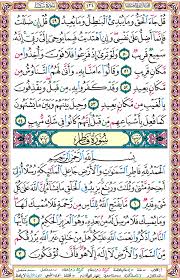 قُلْ جَآءَ الْحَقُّ وَمَا يُبْدِئُ الْبَاطِلُ وَمَا يُعِيدُ قُلْ
إِن ضَلَلْتُ فَإِنَّمَآ أَضِلُّ عَلَىٰ نَفْسِى وَإِنِ اهْتَدَيْتُ فَبِمَا يُوحِىٓ إِلَىَّ رَبِّىٓ إِنَّهُ
سَمِيعٌ قَرِيبٌ وَلَوْ تَرَىٰٓ إِذْ فَزِعُوا فَلَا فَوْتَ وَأُخِذُوا مِن
مَّكَانٍ قَرِيبٍ وَقَالُوٓا ءَامَنَّا بِهِ وَأَنَّىٰ لَهُمُ التَّنَاوُشُ مِن
مَّكَانٍ بَعِيدٍ وَقَدْ كَفَرُوا بِهِ مِن قَبْلُ وَيَقْذِفُونَ
بِالْغَيْبِ مِن مَّكَانٍ بَعِيدٍ وَحِيلَ بَيْنَهُمْ وَبَيْنَ مَا يَشْتَهُونَ
كَمَا فُعِلَ بِأَشْيَاعِهِم مِّن قَبْلُ إِنَّهُمْ كَانُوا فِى شَكٍّ مُّرِيبٍ
سُورَةُ فَاطِرٍ
بِسْمِ اللَّهِ الرَّحْمَٰنِ الرَّحِيمِ
الْحَمْدُ لِلَّهِ فَاطِرِ السَّمَٰوَٰتِ وَالْأَرْضِ جَاعِلِ الْمَلَٰٓئِكَةِ رُسُلًا أُولِىٓ
أَجْنِحَةٍ مَّثْنَىٰ وَثُلَٰثَ وَرُبَٰعَ يَزِيدُ فِى الْخَلْقِ مَا يَشَآءُ إِنَّ اللَّهَ عَلَىٰ كُلِّ
شَىْءٍ قَدِيرٌ مَّا يَفْتَحِ اللَّهُ لِلنَّاسِ مِن رَّحْمَةٍ فَلَا مُمْسِكَ لَهَا
وَمَا يُمْسِكْ فَلَا مُرْسِلَ لَهُ مِن بَعْدِهِ وَهُوَ الْعَزِيزُ الْحَكِيمُ يَٰٓأَيُّهَا
النَّاسُ اذْكُرُوا نِعْمَتَ اللَّهِ عَلَيْكُمْ هَلْ مِنْ خَٰلِقٍ غَيْرُ اللَّهِ يَرْزُقُكُم
مِّنَ السَّمَآءِ وَالْأَرْضِ لَآ إِلَٰهَ إِلَّا هُوَ فَأَنَّىٰ تُؤْفَكُونَ